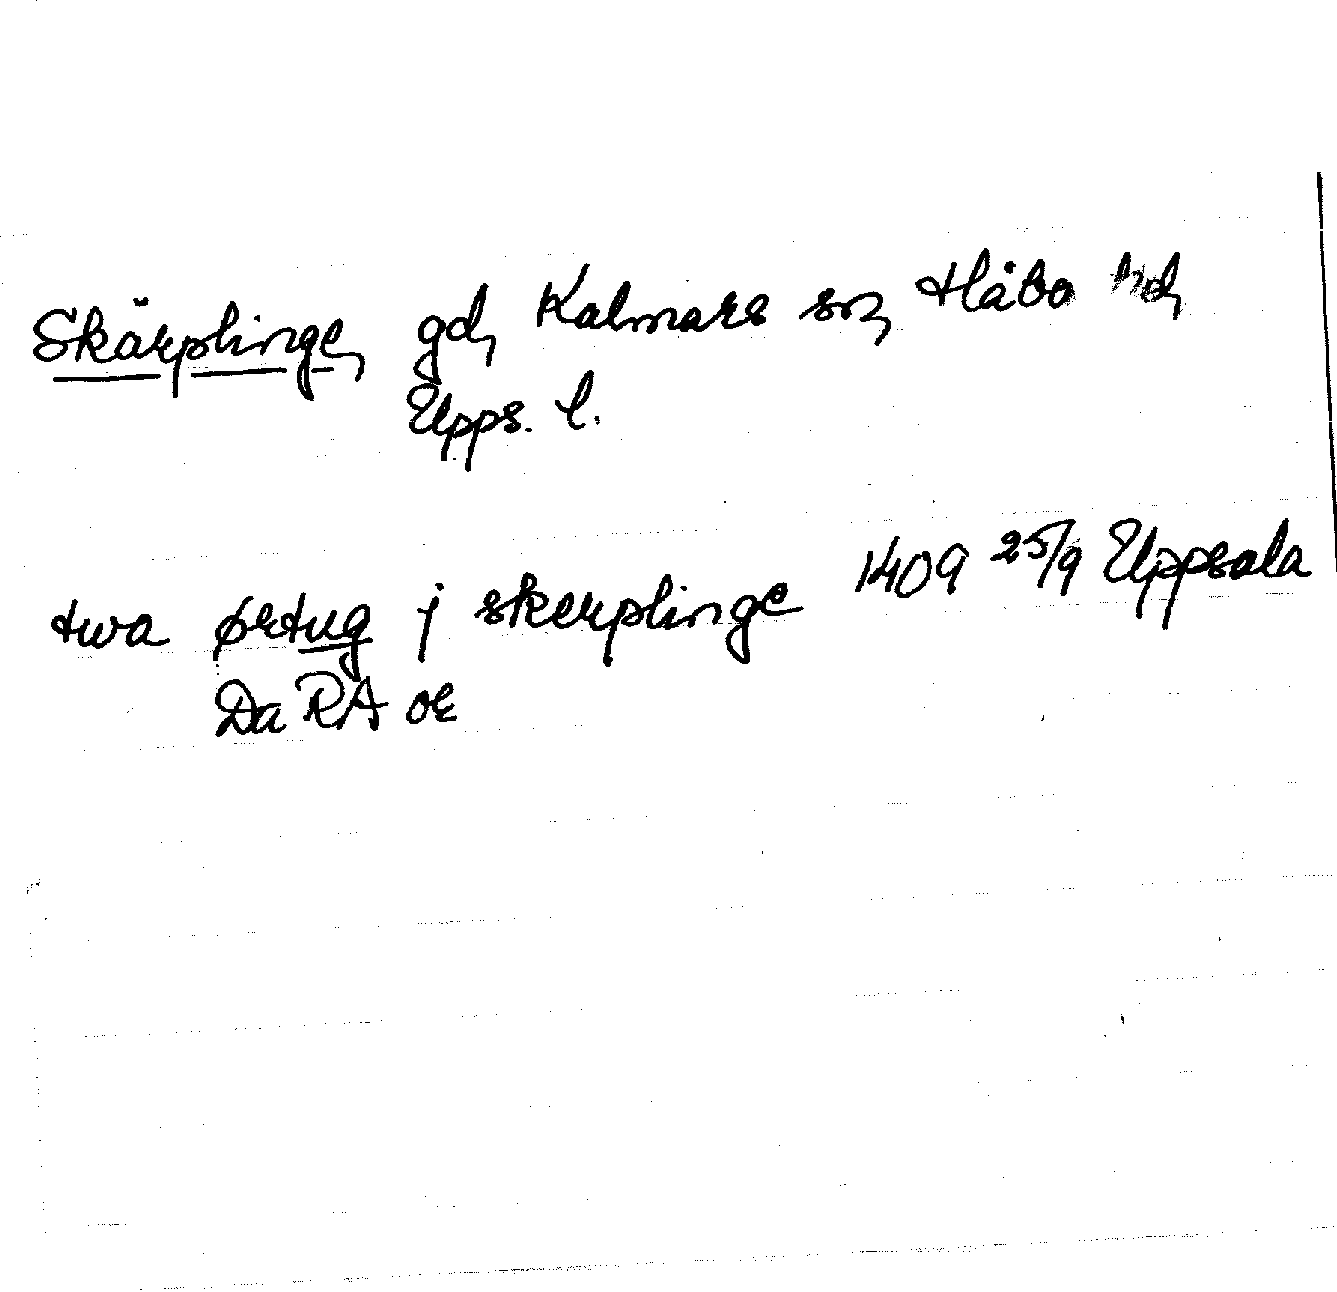 Skärplinge, gd, Kalmars sn, Håbo hd,
Upps. l.
twa ørtug j skerplinge 1409 25/9 Uppsala
Da RA or